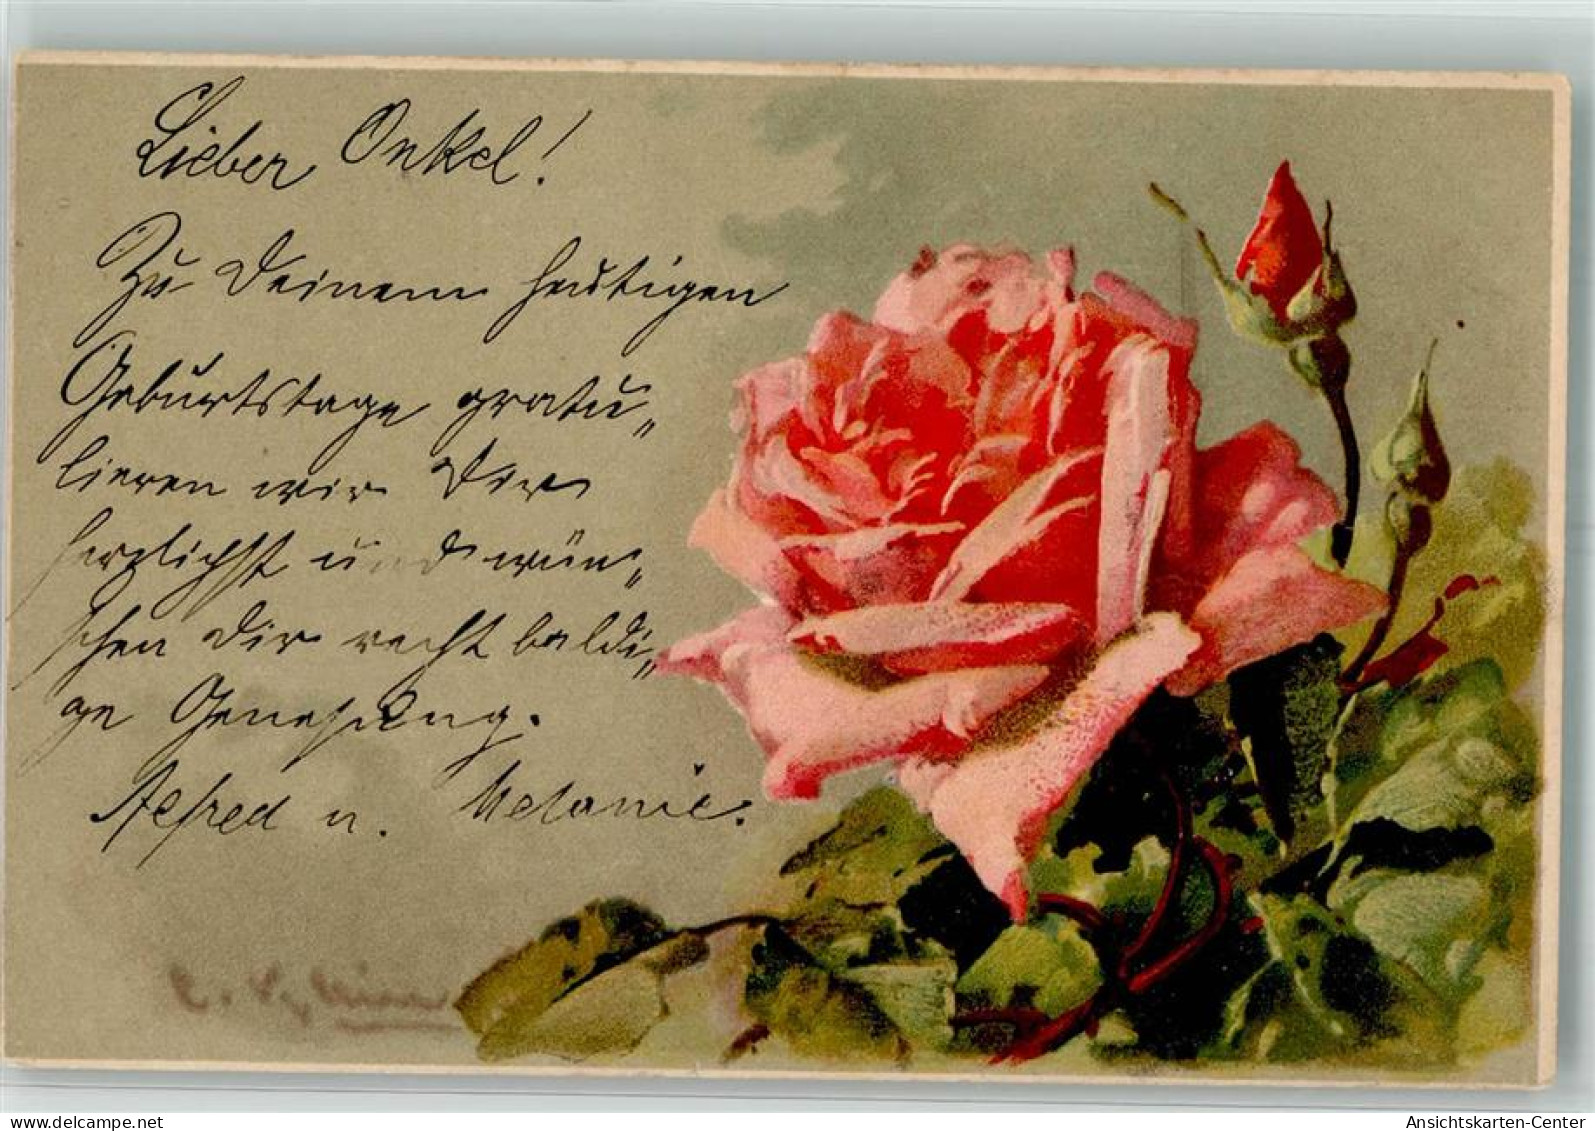 Lieber Onkel!
Zu Deinem heutigen
Geburtstage gratu„
lieren wir Dir
herzlichst und wün„
schen Dir recht baldi„
ge Genesung.
Alfred u. Melanie.
C. Klein
delcampe.net
Ansichtskarten-Center